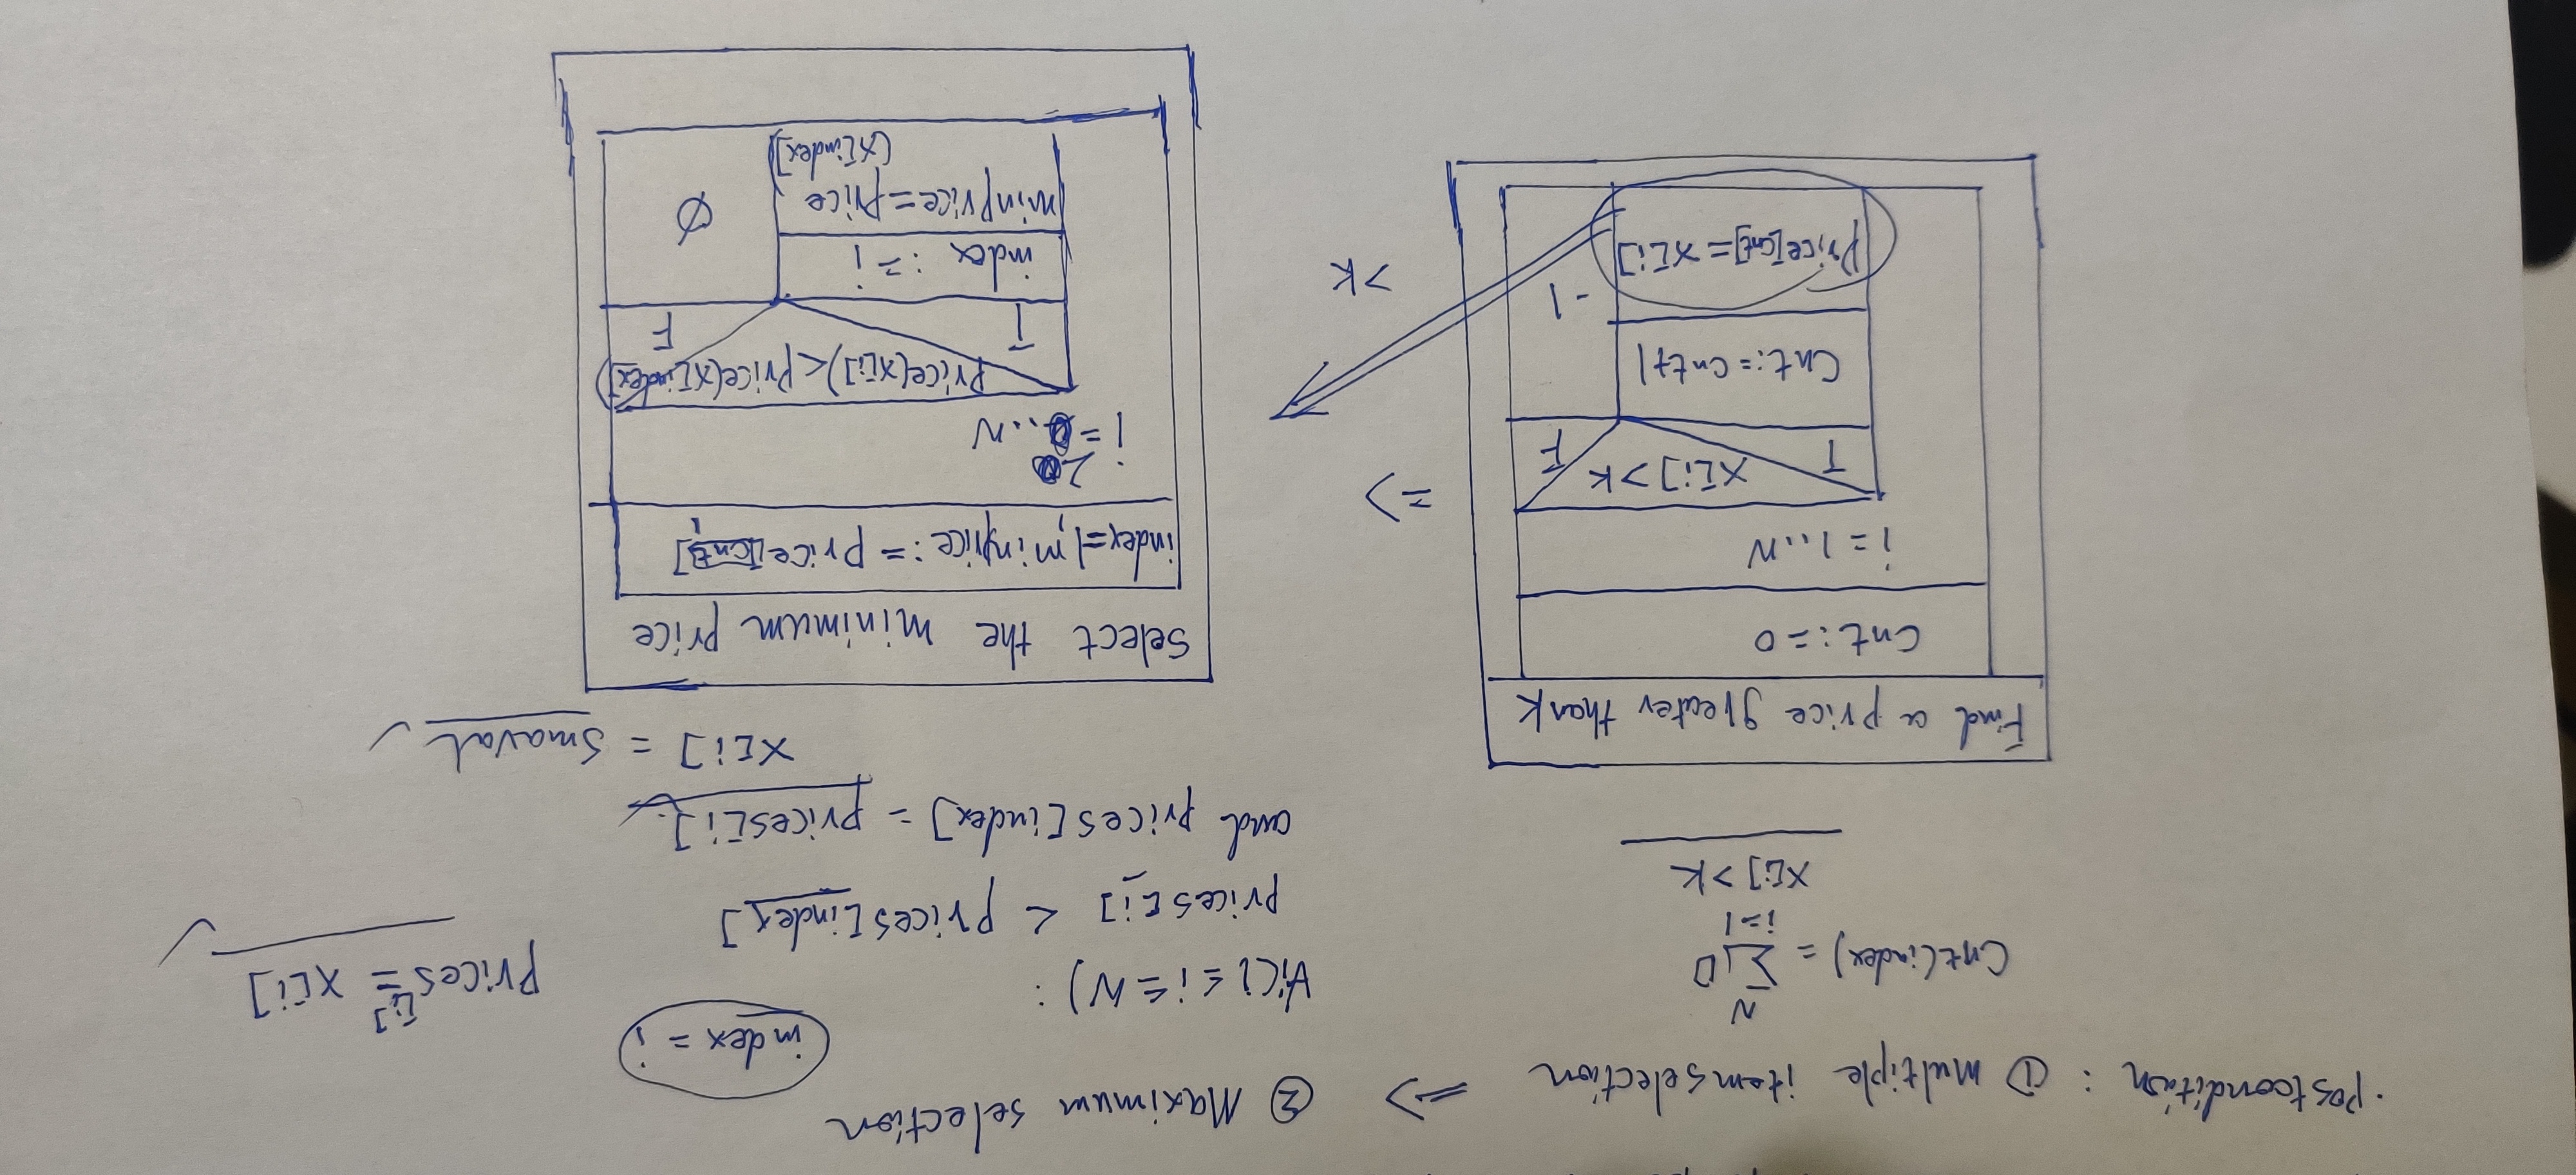 · Postcondition : ① multiple item selection => ② Maximum selection
index = i
Cnt(index) = N ∑ i=1 1
x[i] > K
∀i(1 ≤ i ≤ N) :
prices[i] < prices[index]
and prices[index] = prices[i].
x[i] = smaval ✓
Prices[i] = x[i] ✓
Find a price greater than K
Cnt := 0
i = 1..N
x[i] > K
T F
Cnt := cnt+1
-1
Price[cnt] = x[i]
=>
>K
Select the minimum price
index=1, minprice := Price[1]
i = 2..N
Price(x[i]) < Price(x[index])
T F
index := i
minprice = Price
(x[index])
Ø